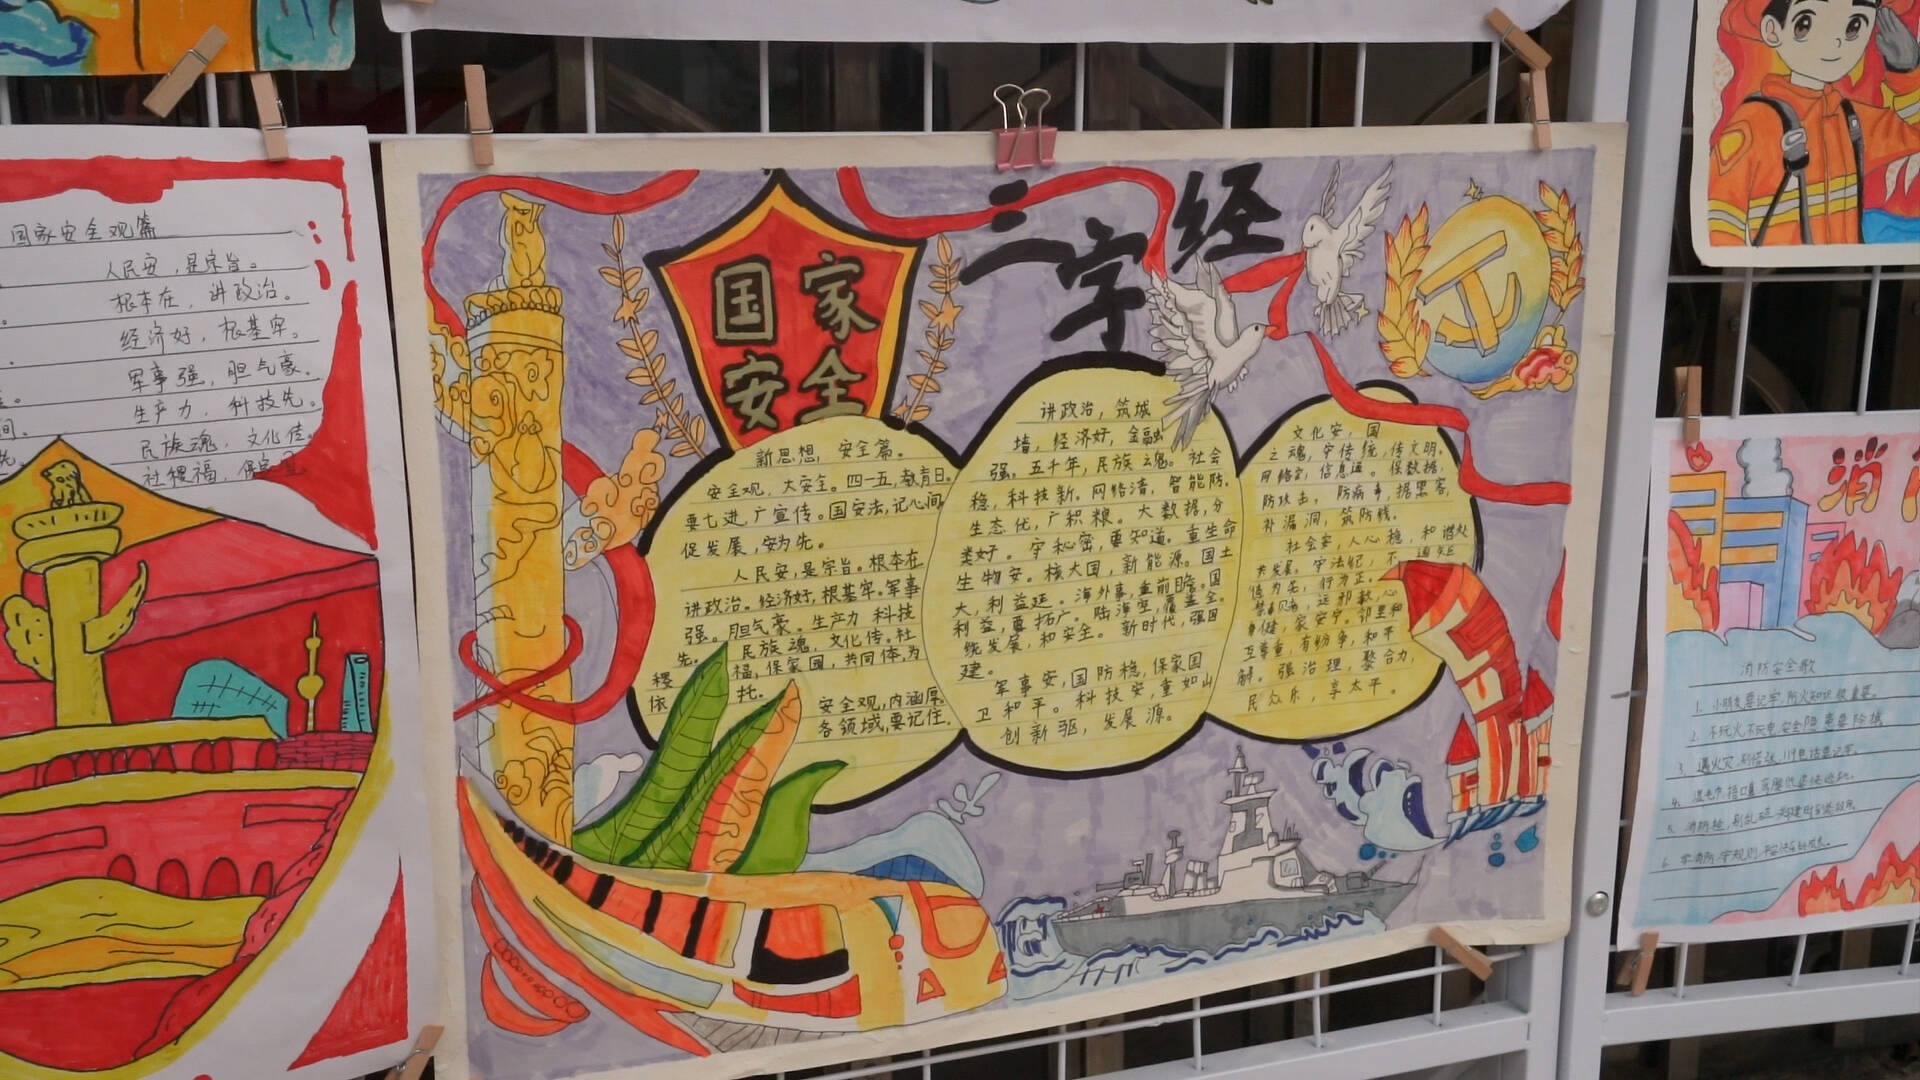 国家安全观篇
人民安,是宗旨。
根本在,讲政治。
经济好,根基牢。
军事强,胆气豪。
生产力,科技先。
民族魂,文化传。
社稷福,保
三字经
国家
安全
新思想,安全篇。
安全观,大安全。四一五,教育日。
要七进,广宣传。国安法,记心间,
促发展,安为先。
人民安,是宗旨。根本在
讲政治。经济好,根基牢。军事
强。胆气豪。生产力 科技
先。民族魂,文化传。社
稷福,保家园,共同体,为
依托。
安全观,内涵厚。
各领域,要记住。
讲政治,筑城
墙,经济好,金融
强。五千年,民族魂。社会
稳,科技新。网络清,智能防。
生态优,广积粮。大数据,分
类好。守秘密,要知道。重生命
生物安。核大国,新能源。国土
大,利益延。海外事,重前瞻。国
利益,要拓广。陆海空,覆盖全。
统发展,和安全。新时代,强国
建。
军事安,国防稳,保家国
卫和平。科技安,重如山
创新驱,发展源。
文化安,国
之魂,守传统,传文明。
网络安,信息通。保数据,
防攻击,防病毒,据黑客,
补漏洞,筑防线。
社会安,人心稳,和谐处
共发展。守法纪,不
行为正。
家安宁。邻里和
互尊重,有纷争,和平
解。强治理,聚合力,
民众乐,享太平。
消
消防安全歌
1、小朋友要记牢,防火知识很重要。
2、不玩火,不玩电,安全隐患要除掉